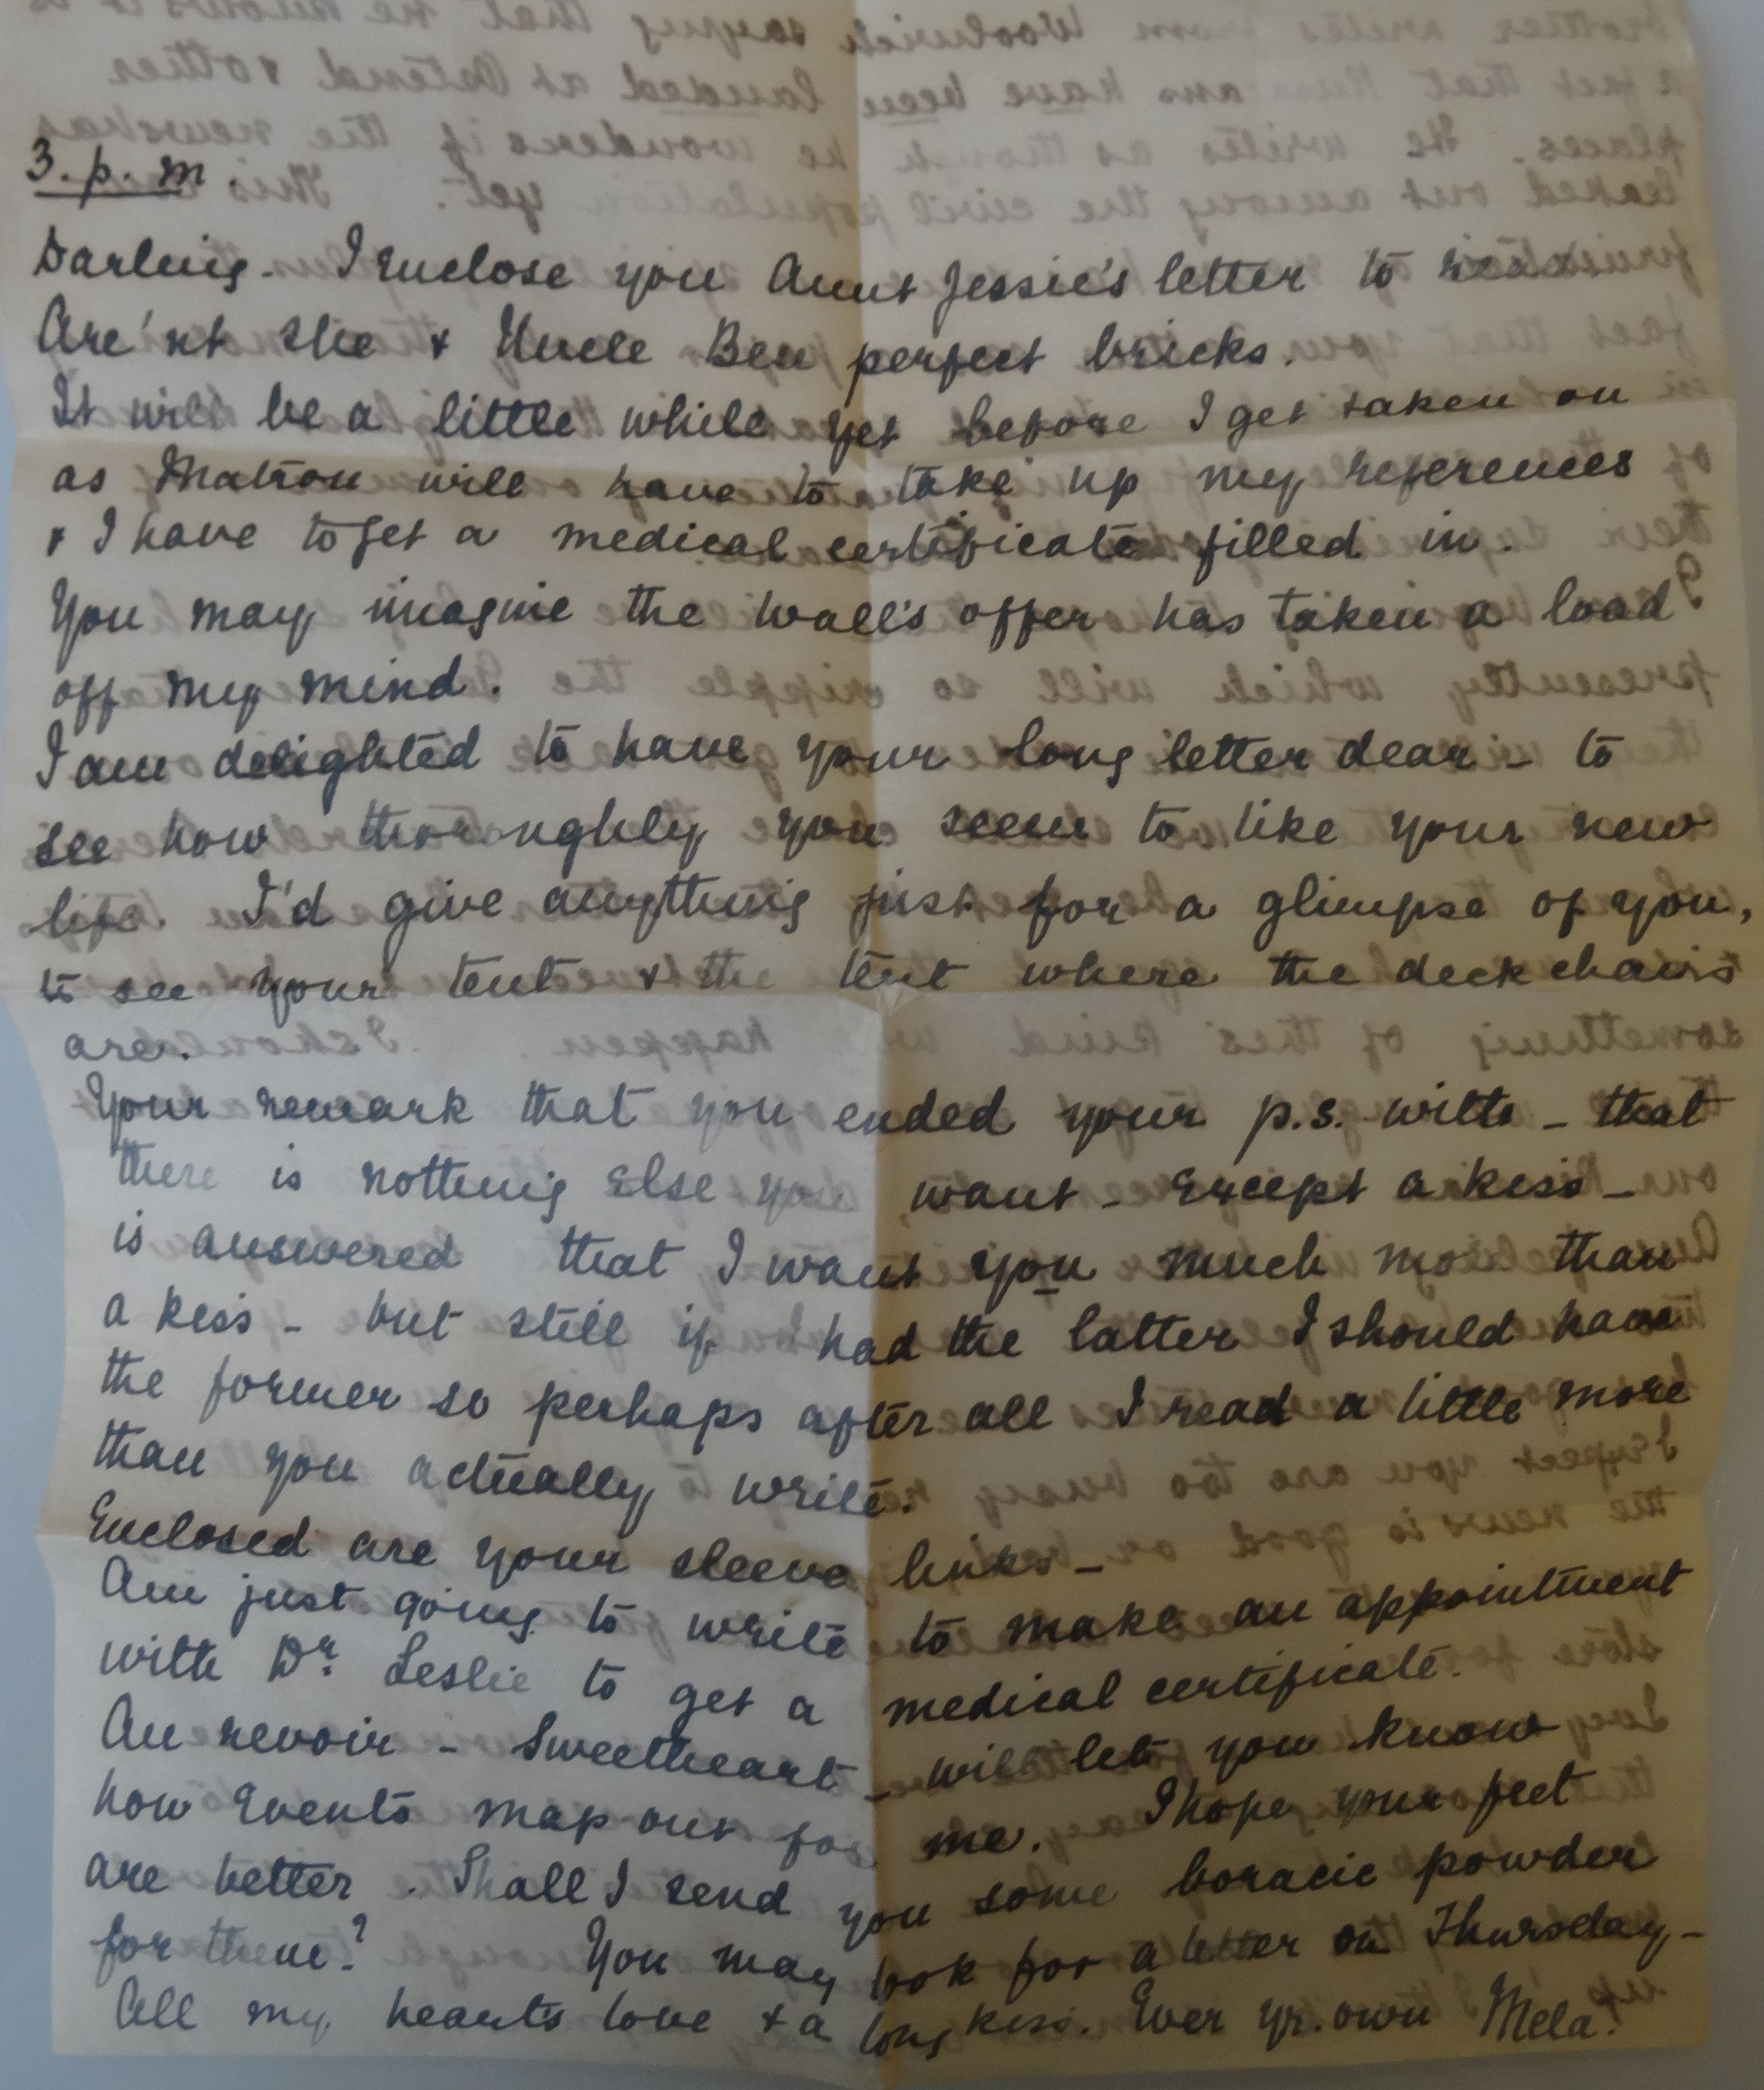 3. p. m.
Darling - I enclose you Aunt Jessie's letter to read.
Are'nt she & Uncle Ben perfect bricks.
It will be a little while yet before I get taken on
as Matron will have to take up my references
& I have to get a medical certificate filled in.
You may imagine the Wall's offer has taken a load
off my mind.
I am delighted to have your long letter dear - to
see how thoroughly you seem to like your new
life. I'd give anything just for a glimpse of you,
to see your tent & the tent where the deck chairs
are.
Your remark that you ended your p.s. with - that
there is nothing else you want - except a kiss -
is answered that I want you much more than
a kiss - but still if I had the latter I should have
the former so perhaps after all I read a little more
than you actually write.
Enclosed are your sleeve links -
Am just going to write to make an appointment
with Dr. Leslie to get a medical certificate.
Au revoir - Sweetheart - will let you know
how events map out for me. I hope your feet
are better. Shall I send you some boracic powder
for them? You may look for a letter on Thursday -
All my heart's love & a long kiss. Ever yr. own Mela.